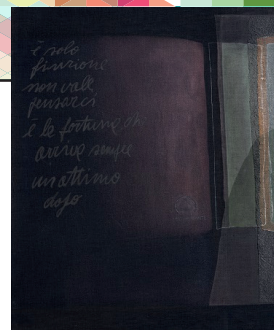 è solo
finzione
non vale
pensarci
è la fortuna che
arriva sempre
un attimo
dopo